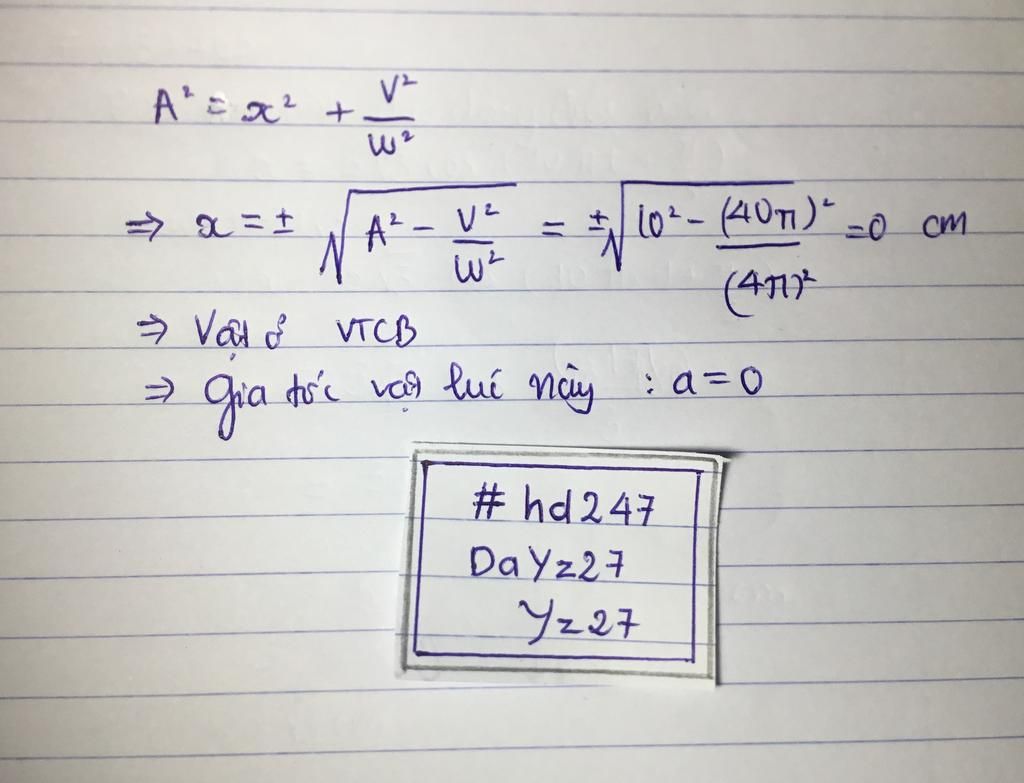 A² = x² + V²/W²
⇒ x = ± √(A² - V²/W²) = ± √(10² - (40π)²/(4π)²) = 0 cm
⇒ Vật ở VTCB
⇒ Gia tốc vật lúc này : a = 0
# hd247
DaYz27
Yz27